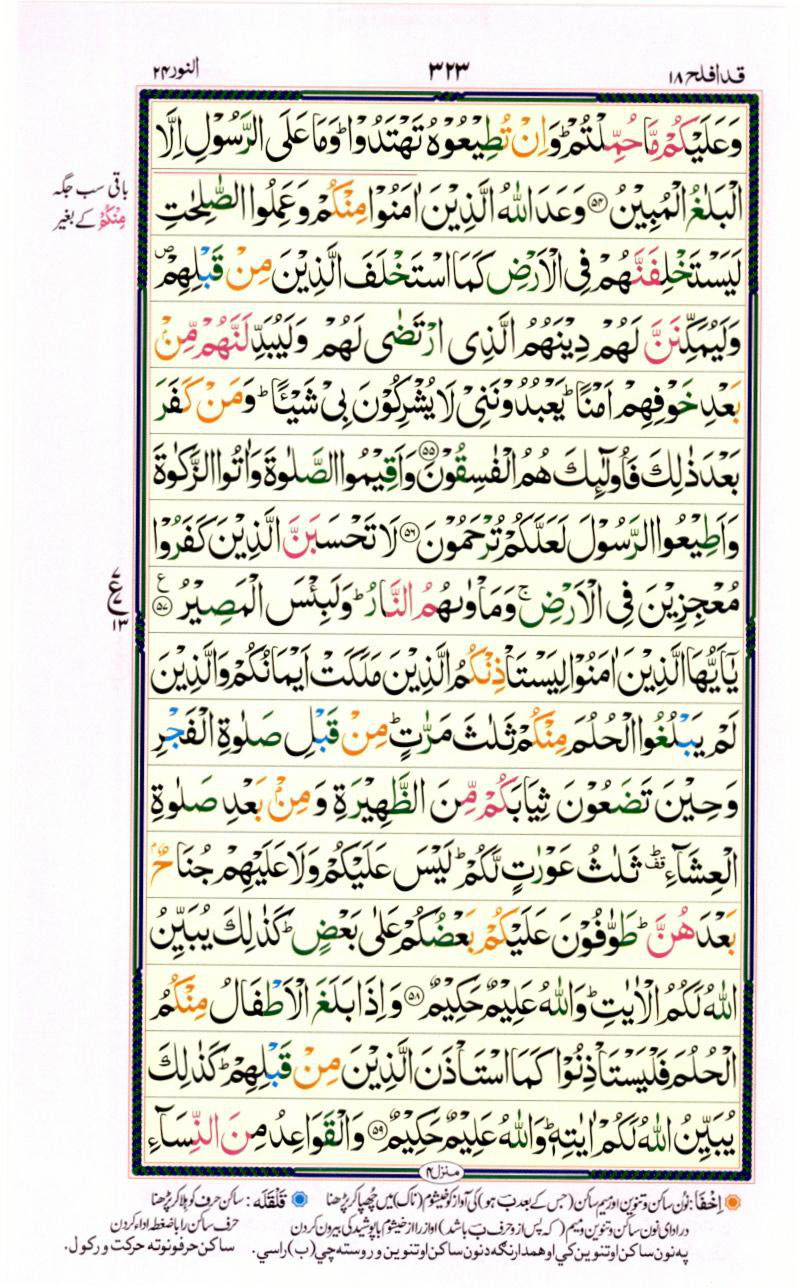 قد افلح ۱۸
۳۲۳
النور ۲۴
وَعَلَيْكُمْ مَّا حُمِّلْتُمْ ؕ وَاِنْ تُطِيْعُوْهُ تَهْتَدُوْا ؕ وَمَا عَلَى الرَّسُوْلِ اِلَّا
الْبَلٰغُ الْمُبِيْنُ ﴿۵۴﴾ وَعَدَ اللّٰهُ الَّذِيْنَ اٰمَنُوْا مِنْكُمْ وَعَمِلُوا الصّٰلِحٰتِ
باقی سب جگہ
مِنْكُمْ کے بغیر
لَيَسْتَخْلِفَنَّهُمْ فِى الْاَرْضِ كَمَا اسْتَخْلَفَ الَّذِيْنَ مِنْ قَبْلِهِمْ ۪
وَلَيُمَكِّنَنَّ لَهُمْ دِيْنَهُمُ الَّذِى ارْتَضٰى لَهُمْ وَلَيُبَدِّلَنَّهُمْ مِّنْۢ
بَعْدِ خَوْفِهِمْ اَمْنًا ؕ يَعْبُدُوْنَنِىْ لَا يُشْرِكُوْنَ بِىْ شَيْـًٔا ؕ وَمَنْ كَفَرَ
بَعْدَ ذٰلِكَ فَاُولٰٓئِكَ هُمُ الْفٰسِقُوْنَ ﴿۵۵﴾ وَاَقِيْمُوا الصَّلٰوةَ وَاٰتُوا الزَّكٰوةَ
وَاَطِيْعُوا الرَّسُوْلَ لَعَلَّكُمْ تُرْحَمُوْنَ ﴿۵۶﴾ لَا تَحْسَبَنَّ الَّذِيْنَ كَفَرُوْا
مُعْجِزِيْنَ فِى الْاَرْضِ ۚ وَمَاْوٰىهُمُ النَّارُ ؕ وَلَبِئْسَ الْمَصِيْرُ ﴿۵۷﴾ ع
۷
ع ۷
۱۳
يٰۤاَيُّهَا الَّذِيْنَ اٰمَنُوْا لِيَسْتَاْذِنْكُمُ الَّذِيْنَ مَلَكَتْ اَيْمَانُكُمْ وَالَّذِيْنَ
لَمْ يَبْلُغُوا الْحُلُمَ مِنْكُمْ ثَلٰثَ مَرّٰتٍ ؕ مِنْ قَبْلِ صَلٰوةِ الْفَجْرِ
وَحِيْنَ تَضَعُوْنَ ثِيَابَكُمْ مِّنَ الظَّهِيْرَةِ وَمِنْۢ بَعْدِ صَلٰوةِ
الْعِشَآءِ ؕ۫ ثَلٰثُ عَوْرٰتٍ لَّكُمْ ؕ لَيْسَ عَلَيْكُمْ وَلَا عَلَيْهِمْ جُنَاحٌۢ
بَعْدَهُنَّ ؕ طَوّٰفُوْنَ عَلَيْكُمْ بَعْضُكُمْ عَلٰى بَعْضٍ ؕ كَذٰلِكَ يُبَيِّنُ
اللّٰهُ لَكُمُ الْاٰيٰتِ ؕ وَاللّٰهُ عَلِيْمٌ حَكِيْمٌ ﴿۵۸﴾ وَاِذَا بَلَغَ الْاَطْفَالُ مِنْكُمُ
الْحُلُمَ فَلْيَسْتَاْذِنُوْا كَمَا اسْتَاْذَنَ الَّذِيْنَ مِنْ قَبْلِهِمْ ؕ كَذٰلِكَ
يُبَيِّنُ اللّٰهُ لَكُمْ اٰيٰتِهٖ ؕ وَاللّٰهُ عَلِيْمٌ حَكِيْمٌ ﴿۵۹﴾ وَالْقَوَاعِدُ مِنَ النِّسَآءِ
منزل ۴
اِخفَا: نُون ساکن و تنوین اور میم ساکن (جس کے بعد ب ہو) کی آواز کو خیشوم (ناک) میں چُھپا کر پڑھنا
قَلْقَلَه: ساکن حرف کو ہلا کر پڑھنا
در ادای نون ساکن و تنوین و میم (که پس از و حرف ب باشد) اواز را از خیشوم با پوشیدگی بیرون کردن
حرف ساکن را باضغط اداء کردن
په نون ساکن او تنوین کي او همدارنګه د نون ساکن او تنوین و روسته چي (ب) راسي.
ساکن حرفونو ته حرکت ورکول.